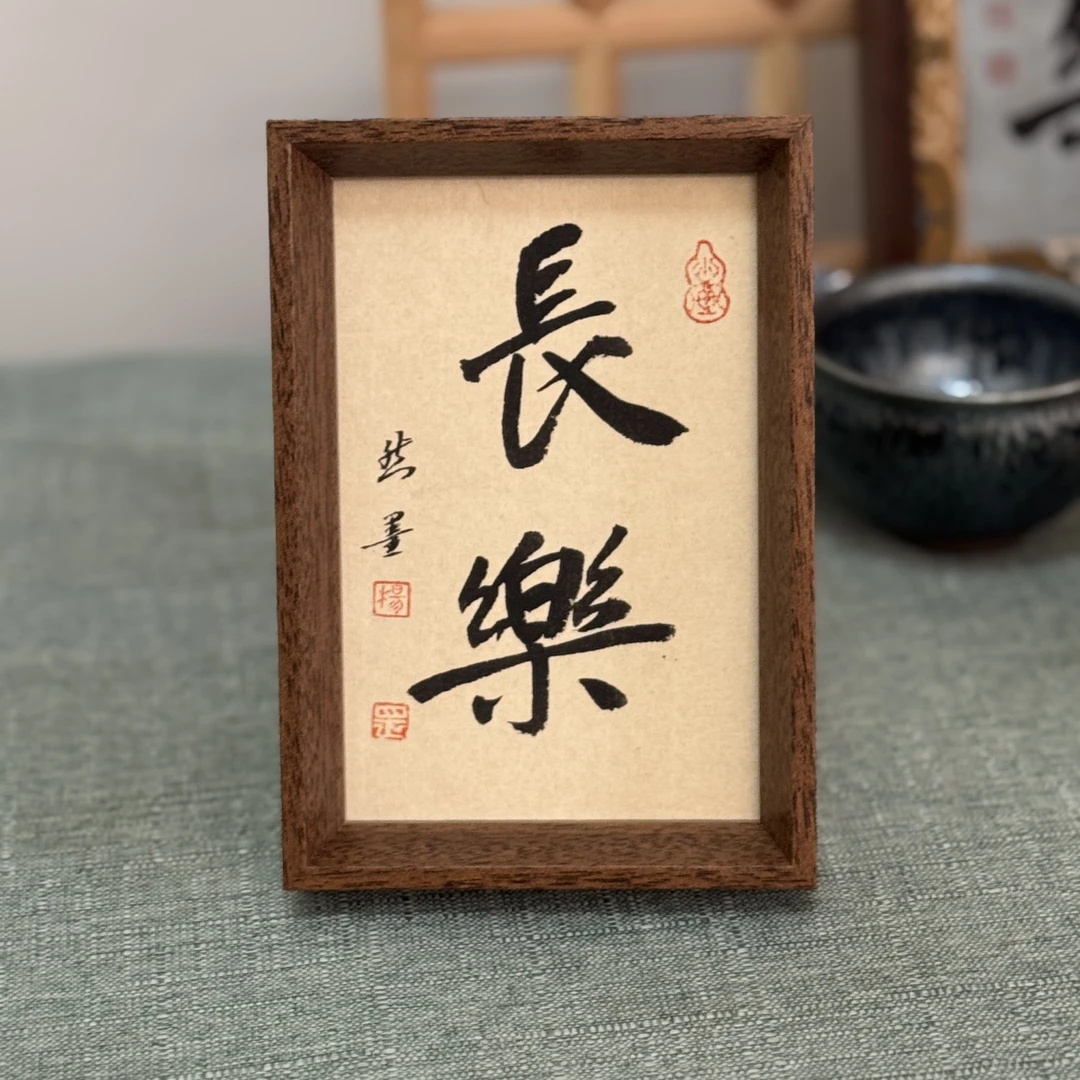 長樂
然墨
楊